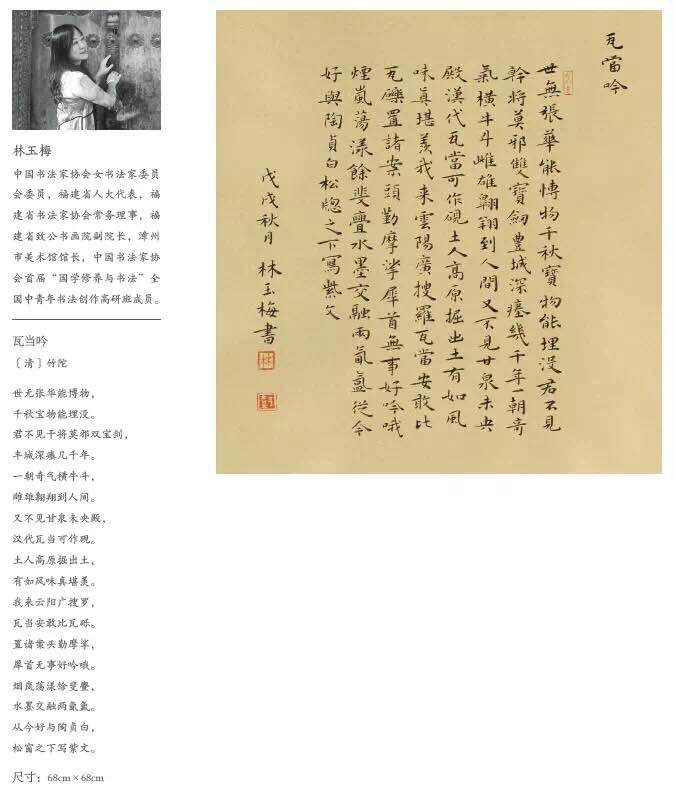 林玉梅
中国书法家协会女书法家委员
会委员，福建省人大代表，福
建省书法家协会常务理事，福
建省致公书画院副院长，漳州
市美术馆馆长，中国书法家协
会首届“国学修养与书法”全
国中青年书法创作高研班成员。
瓦当吟
〔清〕竹陀
世无张华能博物，
千秋宝物能埋没。
君不见干将莫邪双宝剑，
丰城深瘗几千年。
一朝奇气横牛斗，
雌雄翱翔到人间。
又不见甘泉未央殿，
汉代瓦当可作砚。
土人高原掘出土，
有如风味真堪羡。
我来云阳广搜罗，
瓦当安敢比瓦砾。
置诸案头勤摩挲，
犀首无事好吟哦。
烟岚荡漾馀斐亹，
水墨交融两氤氲。
从今好与陶贞白，
松窗之下写紫文。
尺寸：68cm×68cm
瓦當吟
世無張華能博物千秋寶物能埋没君不見
幹将莫邪雙寶劒豊城深瘞幾千年一朝奇
氣橫牛斗雌雄翱翔到人間又不見甘泉未央
殿漢代瓦當可作硯土人高原掘出土有如風
味真堪羡我来雲陽廣搜羅瓦當安敢比
瓦礫置諸案頭勤摩挲犀首無事好吟哦
煙嵐蕩漾餘斐亹水墨交融兩氤氲從今
好與陶貞白松窓之下寫紫文
戊戌秋月 林玉梅書
林